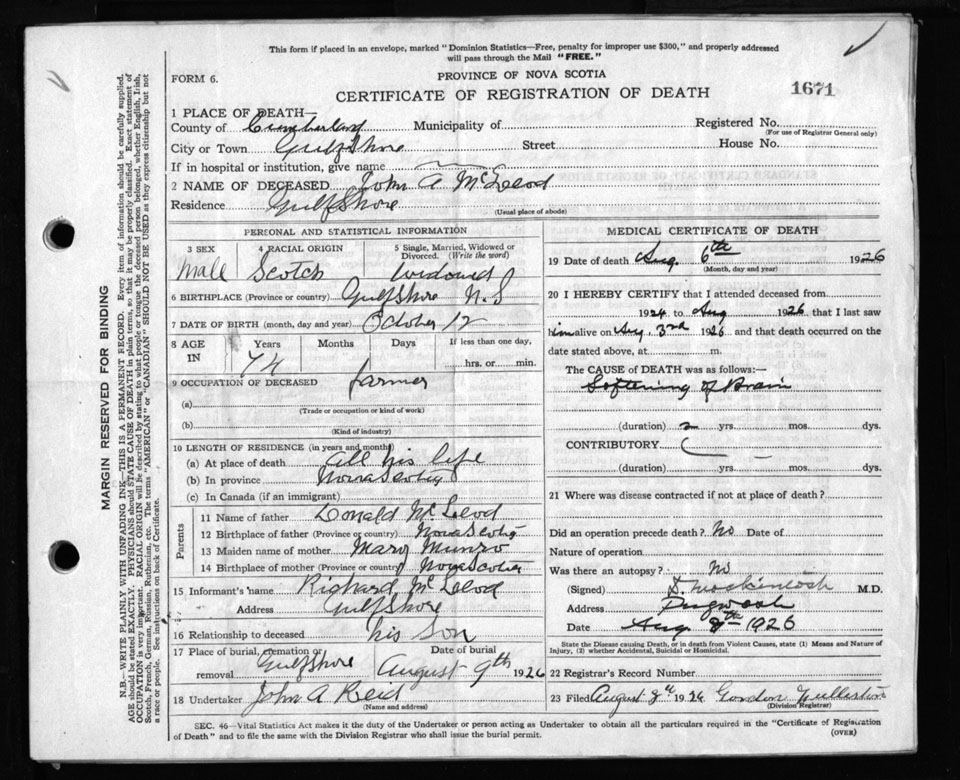 This form if placed in an envelope, marked "Dominion Statistics—Free, penalty for improper use $300," and properly addressed
will pass through the Mail "FREE."
FORM 6.
PROVINCE OF NOVA SCOTIA
CERTIFICATE OF REGISTRATION OF DEATH
1671
1 PLACE OF DEATH—
County of Cumberland Municipality of Registered No.
(For use of Registrar General only)
City or Town Gulf Shore Street House No.
If in hospital or institution, give name
2 NAME OF DECEASED John A McLeod
Residence Gulf Shore
(Usual place of abode)
PERSONAL AND STATISTICAL INFORMATION
3 SEX 4 RACIAL ORIGIN 5 Single, Married, Widowed or Divorced. (Write the word)
Male Scotch Widowed
6 BIRTHPLACE (Province or country) Gulf Shore N.S
7 DATE OF BIRTH (month, day and year) October 12
8 AGE IN Years Months Days If less than one day,
74 hrs. or min.
9 OCCUPATION OF DECEASED farmer
(a)
(Trade or occupation or kind of work)
(b)
(Kind of industry)
10 LENGTH OF RESIDENCE (in years and months)
(a) At place of death all his life
(b) In province Nova Scotia
(c) In Canada (if an immigrant)
Parents
11 Name of father Donald McLeod
12 Birthplace of father (Province or country) Nova Scotia
13 Maiden name of mother Mary Munro
14 Birthplace of mother (Province or country) Nova Scotia
15 Informant's name Richard McLeod
Address Gulf Shore
16 Relationship to deceased his Son
17 Place of burial, cremation or removal Gulf Shore Date of burial August 9th 1926
18 Undertaker John A Reid
(Name and address)
MEDICAL CERTIFICATE OF DEATH
19 Date of death Aug. 6th 1926
(Month, day and year)
20 I HEREBY CERTIFY that I attended deceased from
1924 to Aug 1926 that I last saw
him alive on Aug. 3rd 1926 and that death occurred on the
date stated above, at m.
The CAUSE of DEATH was as follows:—
Softening of Brain
(duration) 2 yrs. mos. days.
CONTRIBUTORY
(duration) yrs. mos. dys.
21 Where was disease contracted if not at place of death?
Did an operation precede death? No Date of
Nature of operation
Was there an autopsy? No
(Signed) D. Mackintosh M.D.
Address Pugwash
Date Aug 8th 1926
State the Disease causing Death, or in death from Violent Causes, state (1) Means and Nature of
Injury, (2) whether Accidental, Suicidal or Homicidal.
22 Registrar's Record Number
23 Filed August 8th 1926 Gordon
(Division Registrar)
SEC. 46—Vital Statistics Act makes it the duty of the Undertaker or person acting as Undertaker to obtain all the particulars required in the "Certificate of Registration
of Death" and to file the same with the Division Registrar who shall issue the burial permit.
(OVER)
MARGIN RESERVED FOR BINDING
N.B.—WRITE PLAINLY WITH UNFADING INK—THIS IS A PERMANENT RECORD. Every item of information should be carefully supplied.
AGE should be stated EXACTLY. PHYSICIANS should STATE CAUSE OF DEATH in plain terms, so that it may be properly classified. Exact statement of
OCCUPATION is very important. RACIAL ORIGIN will be described by stating to what people or tongue the deceased person belonged, whether English, Irish,
Scotch, French, German, Russian, Ruthenian, etc. The terms "AMERICAN" or "CANADIAN" SHOULD NOT BE USED as they express citizenship but not
a race or people. See instructions on back of Certificate.